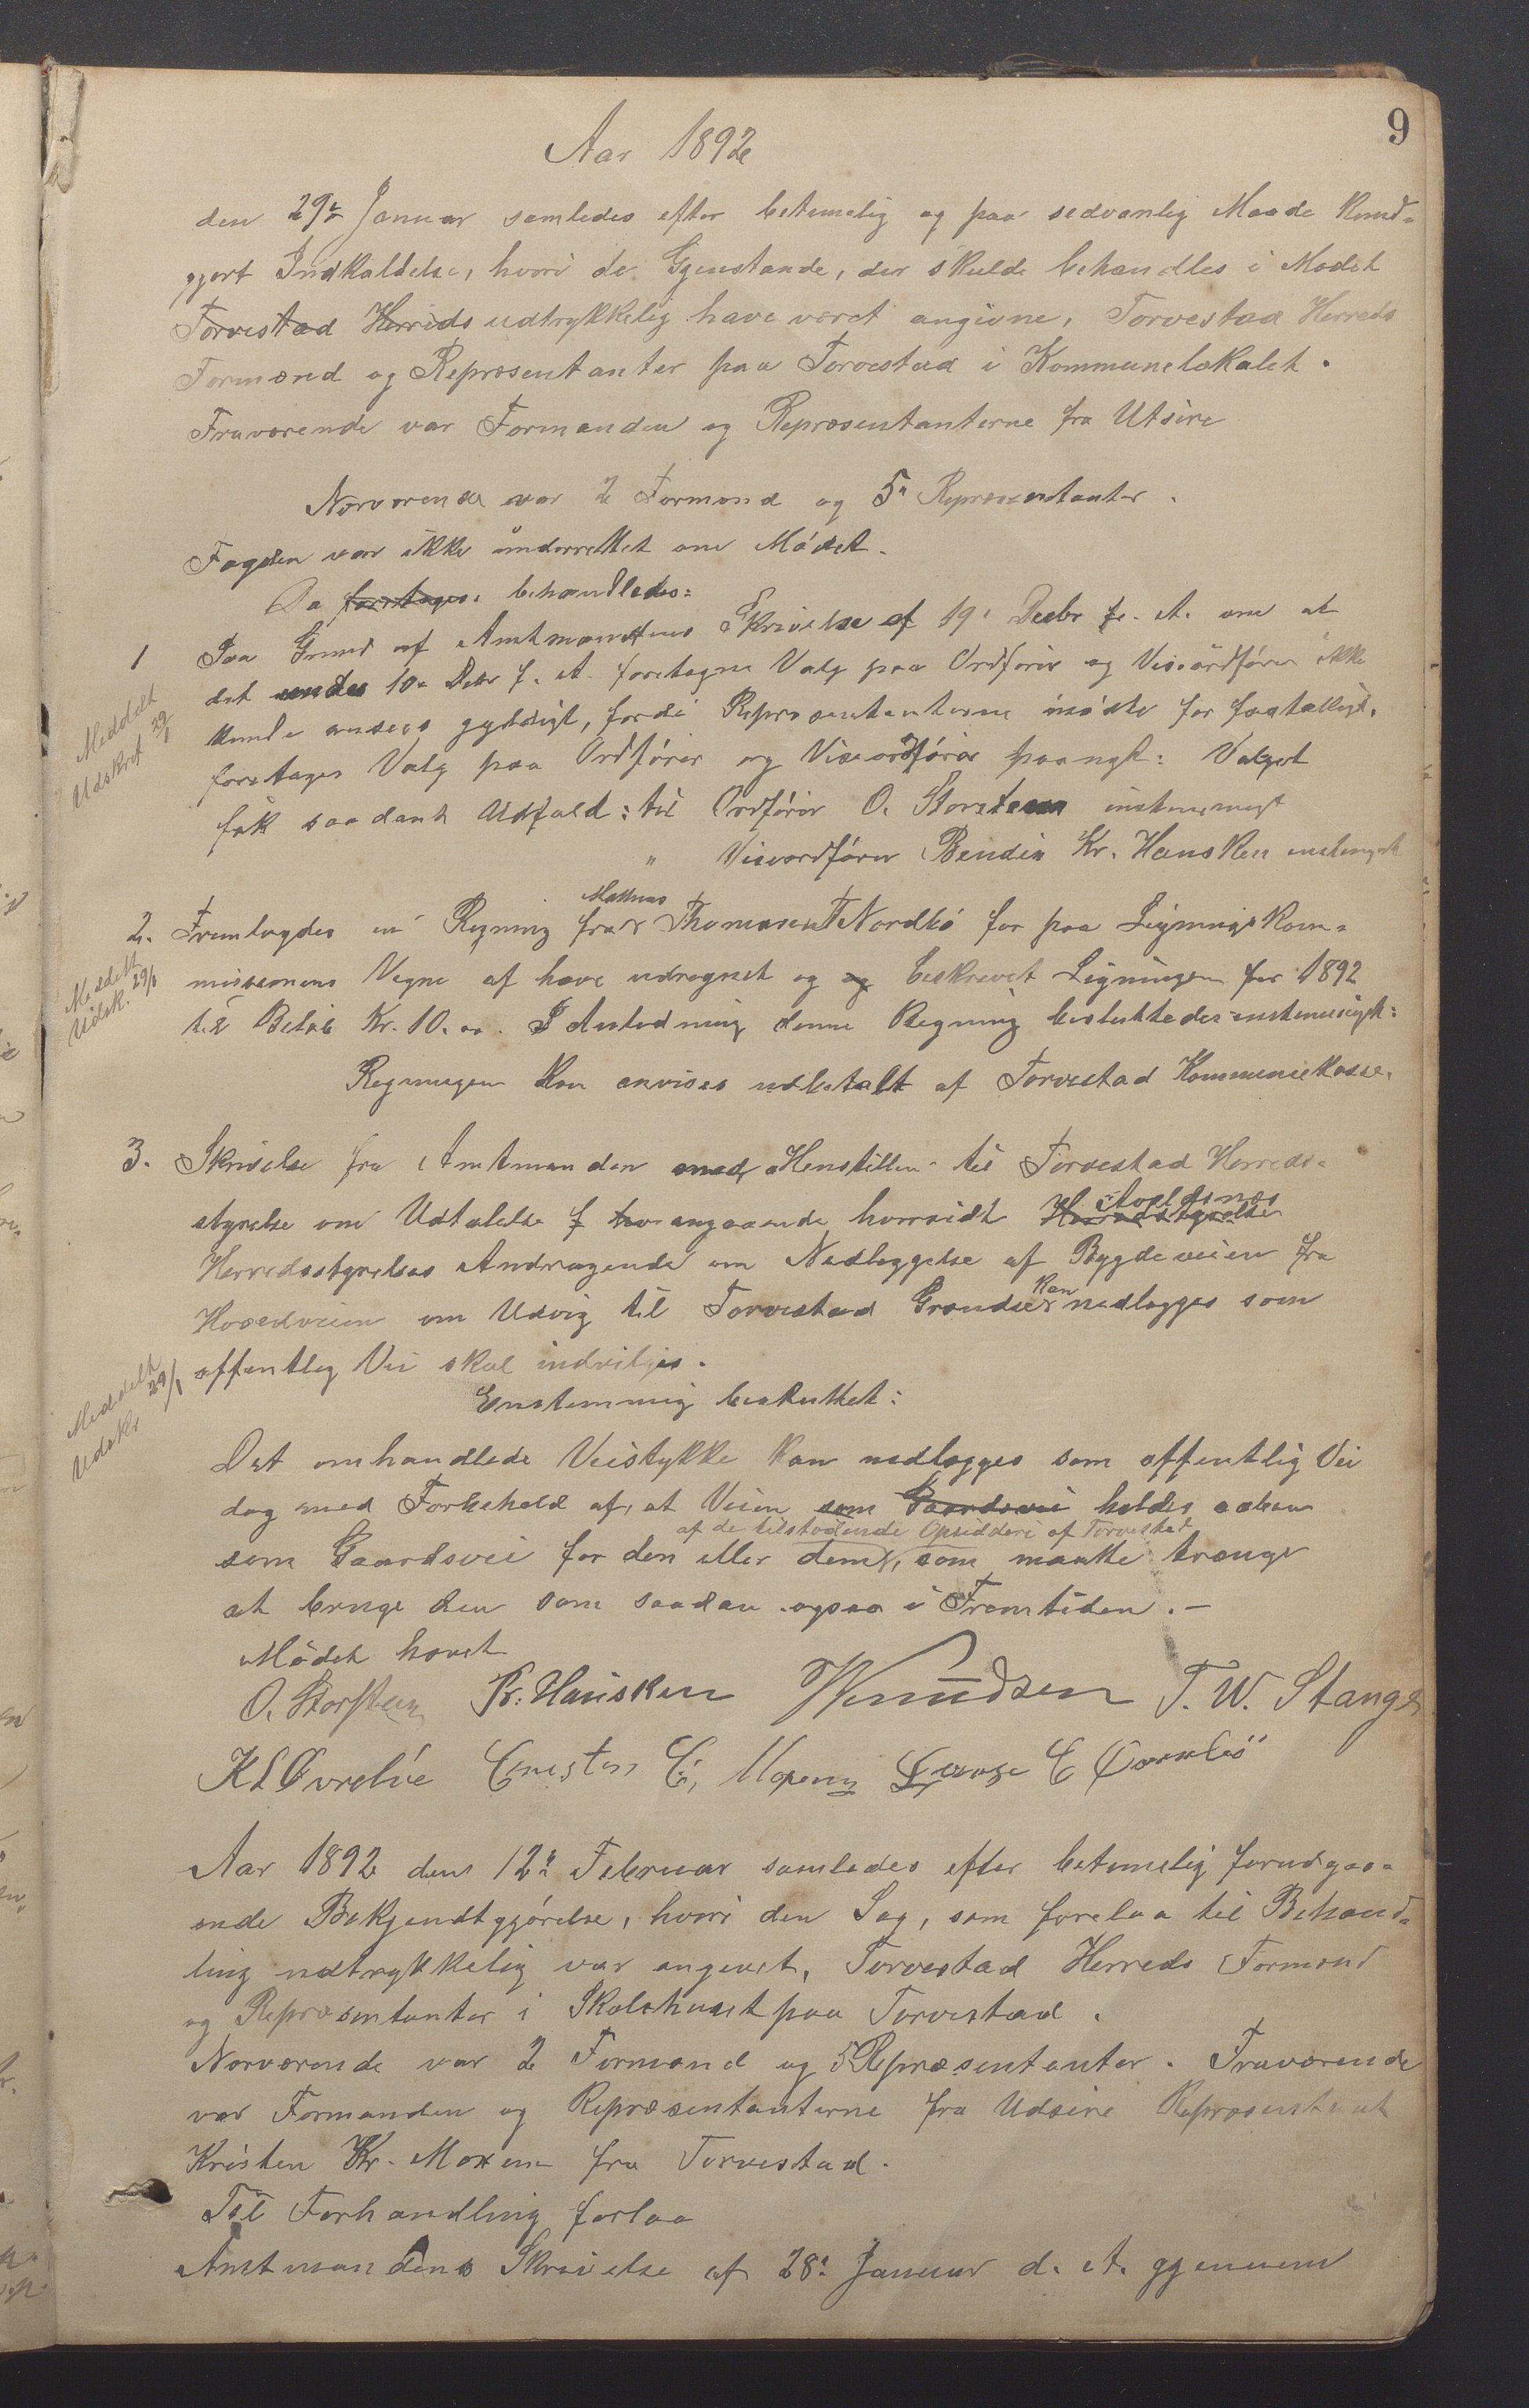 9
Aar 1892
den 29de Januar samledes efter betimelig og paa sedvanlig Maade kund-
gjort Indkaldelse, hvori de Gjenstande, der skulde behandles i Mødet
Torvestad Herreds udtrykkelig have været angivne, Torvestad Herreds
Formænd og Repræsentanter paa Torvestad i Kommunelokalet.
Fraværende var Formanden og Repræsentanterne fra Utsire
Nærværende var 2 Formænd og 5 Repræsentanter.
Fogden var ikke underrettet om Mødet.
Da foretages behandledes:
1 Paa Grund af Amtmandens Skrivelse af 19. Decbr f. A. om at
det under 10. Decbr f. A. foretagne Valg paa Ordfører og Viseordfører ikke
kunde ansees gyldigt, fordi Repræsentanterne mødte for faatalligt,
foretages Valg paa Ordfører og Viseordfører paanyt: Valget
fik saadant Udfald: til Ordfører O. Storsteen enstemmigt
" Viseordfører Bendix Kr. Hausken enstemmigt
Meddelt
Udskrift 29/1
Mathias
2. Fremlagdes en Regning fra Thomasen Nordbø for paa Ligningskom-
missionens Vegne at have udregnet og og beskrevet Ligningen for 1892
til Beløb Kr. 10.00. I Anledning denne Regning besluttedes enstemmigt:
Regningen kan anvises udbetalt af Torvestad Kommunekasse.
Meddelt
Udsk. 29/1
3. Skrivelse fra Amtmanden med Henstillen til Torvestad Herreds-
styrelse om Udtalelse f hv angaaende hvorvidt Herredsstyrelse Skoldsnes
Herredsstyrelses Andragende om Nedlæggelse af Bygdeveien fra
Hovedveien om Udvig til Torvestad Grændse kan nedlægges som
offentlig Vei skal indvilges.
Enstemmig besluttet:
Meddelt
Udskr 29/1
Det omhandlede Veistykke kan nedlægges som offentlig Vei
dog med Forbehold af, at Veien som Gaardsvei holdes aaben
af de tilstødende Opsiddere af Torvestad
som Gaardsvei for den eller dem, som maatte trænge
at bruge den som saadan ogsaa i Fremtiden.-
Mødet hævet
O. Storsteen Kr. Hausken Knudsen T. W. Stange
K L Øvrebøe Cristen C, Moxenes Lause C
Aar 1892 den 12te Februar samledes efter betimelig forudgaa-
ende Bekjendtgjørelse, hvori den Sag, som forelaa til Behand-
ling udtrykkelig var angivet, Torvestad Herreds Formænd
og Repræsentanter i Skolehuset paa Torvestad.
Nærværende var 2 Formænd og 5 Repræsentanter. Fraværende
var Formanden og Repræsentanterne fra Udsire Repræsentant
Kristen Kr. Moxenes fra Torvestad.
Til Forhandling forlaa
Amtmandens Skrivelse af 28. Januar d. A. gjennem